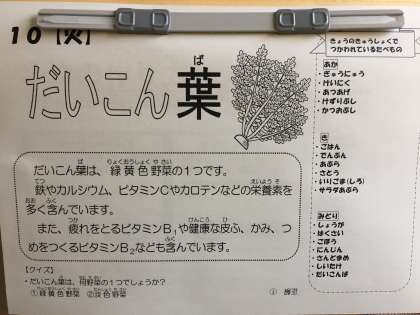 10【火】
だいこん葉
だいこん葉は、緑黄色野菜の１つです。
鉄やカルシウム、ビタミンCやカロテンなどの栄養素を
多く含んでいます。
また、疲れをとるビタミンB₁や健康な皮ふ、かみ、つ
めをつくるビタミンB₂なども含んでいます。
【クイズ】
・だいこん葉は、何野菜の１つでしょうか？
①緑黄色野菜　②淡色野菜
きょうのきゅうしょくで
つかわれているたべもの
あか
・ぎゅうにゅう
・けいにく
・あつあげ
・けずりぶし
・かつおぶし
き
・ごはん
・でんぷん
・あぶら
・さとう
・いりごま(しろ)
・サラダあぶら
みどり
・しょうが
・はくさい
・ごぼう
・にんじん
・さんどまめ
・しいたけ
・だいこんば